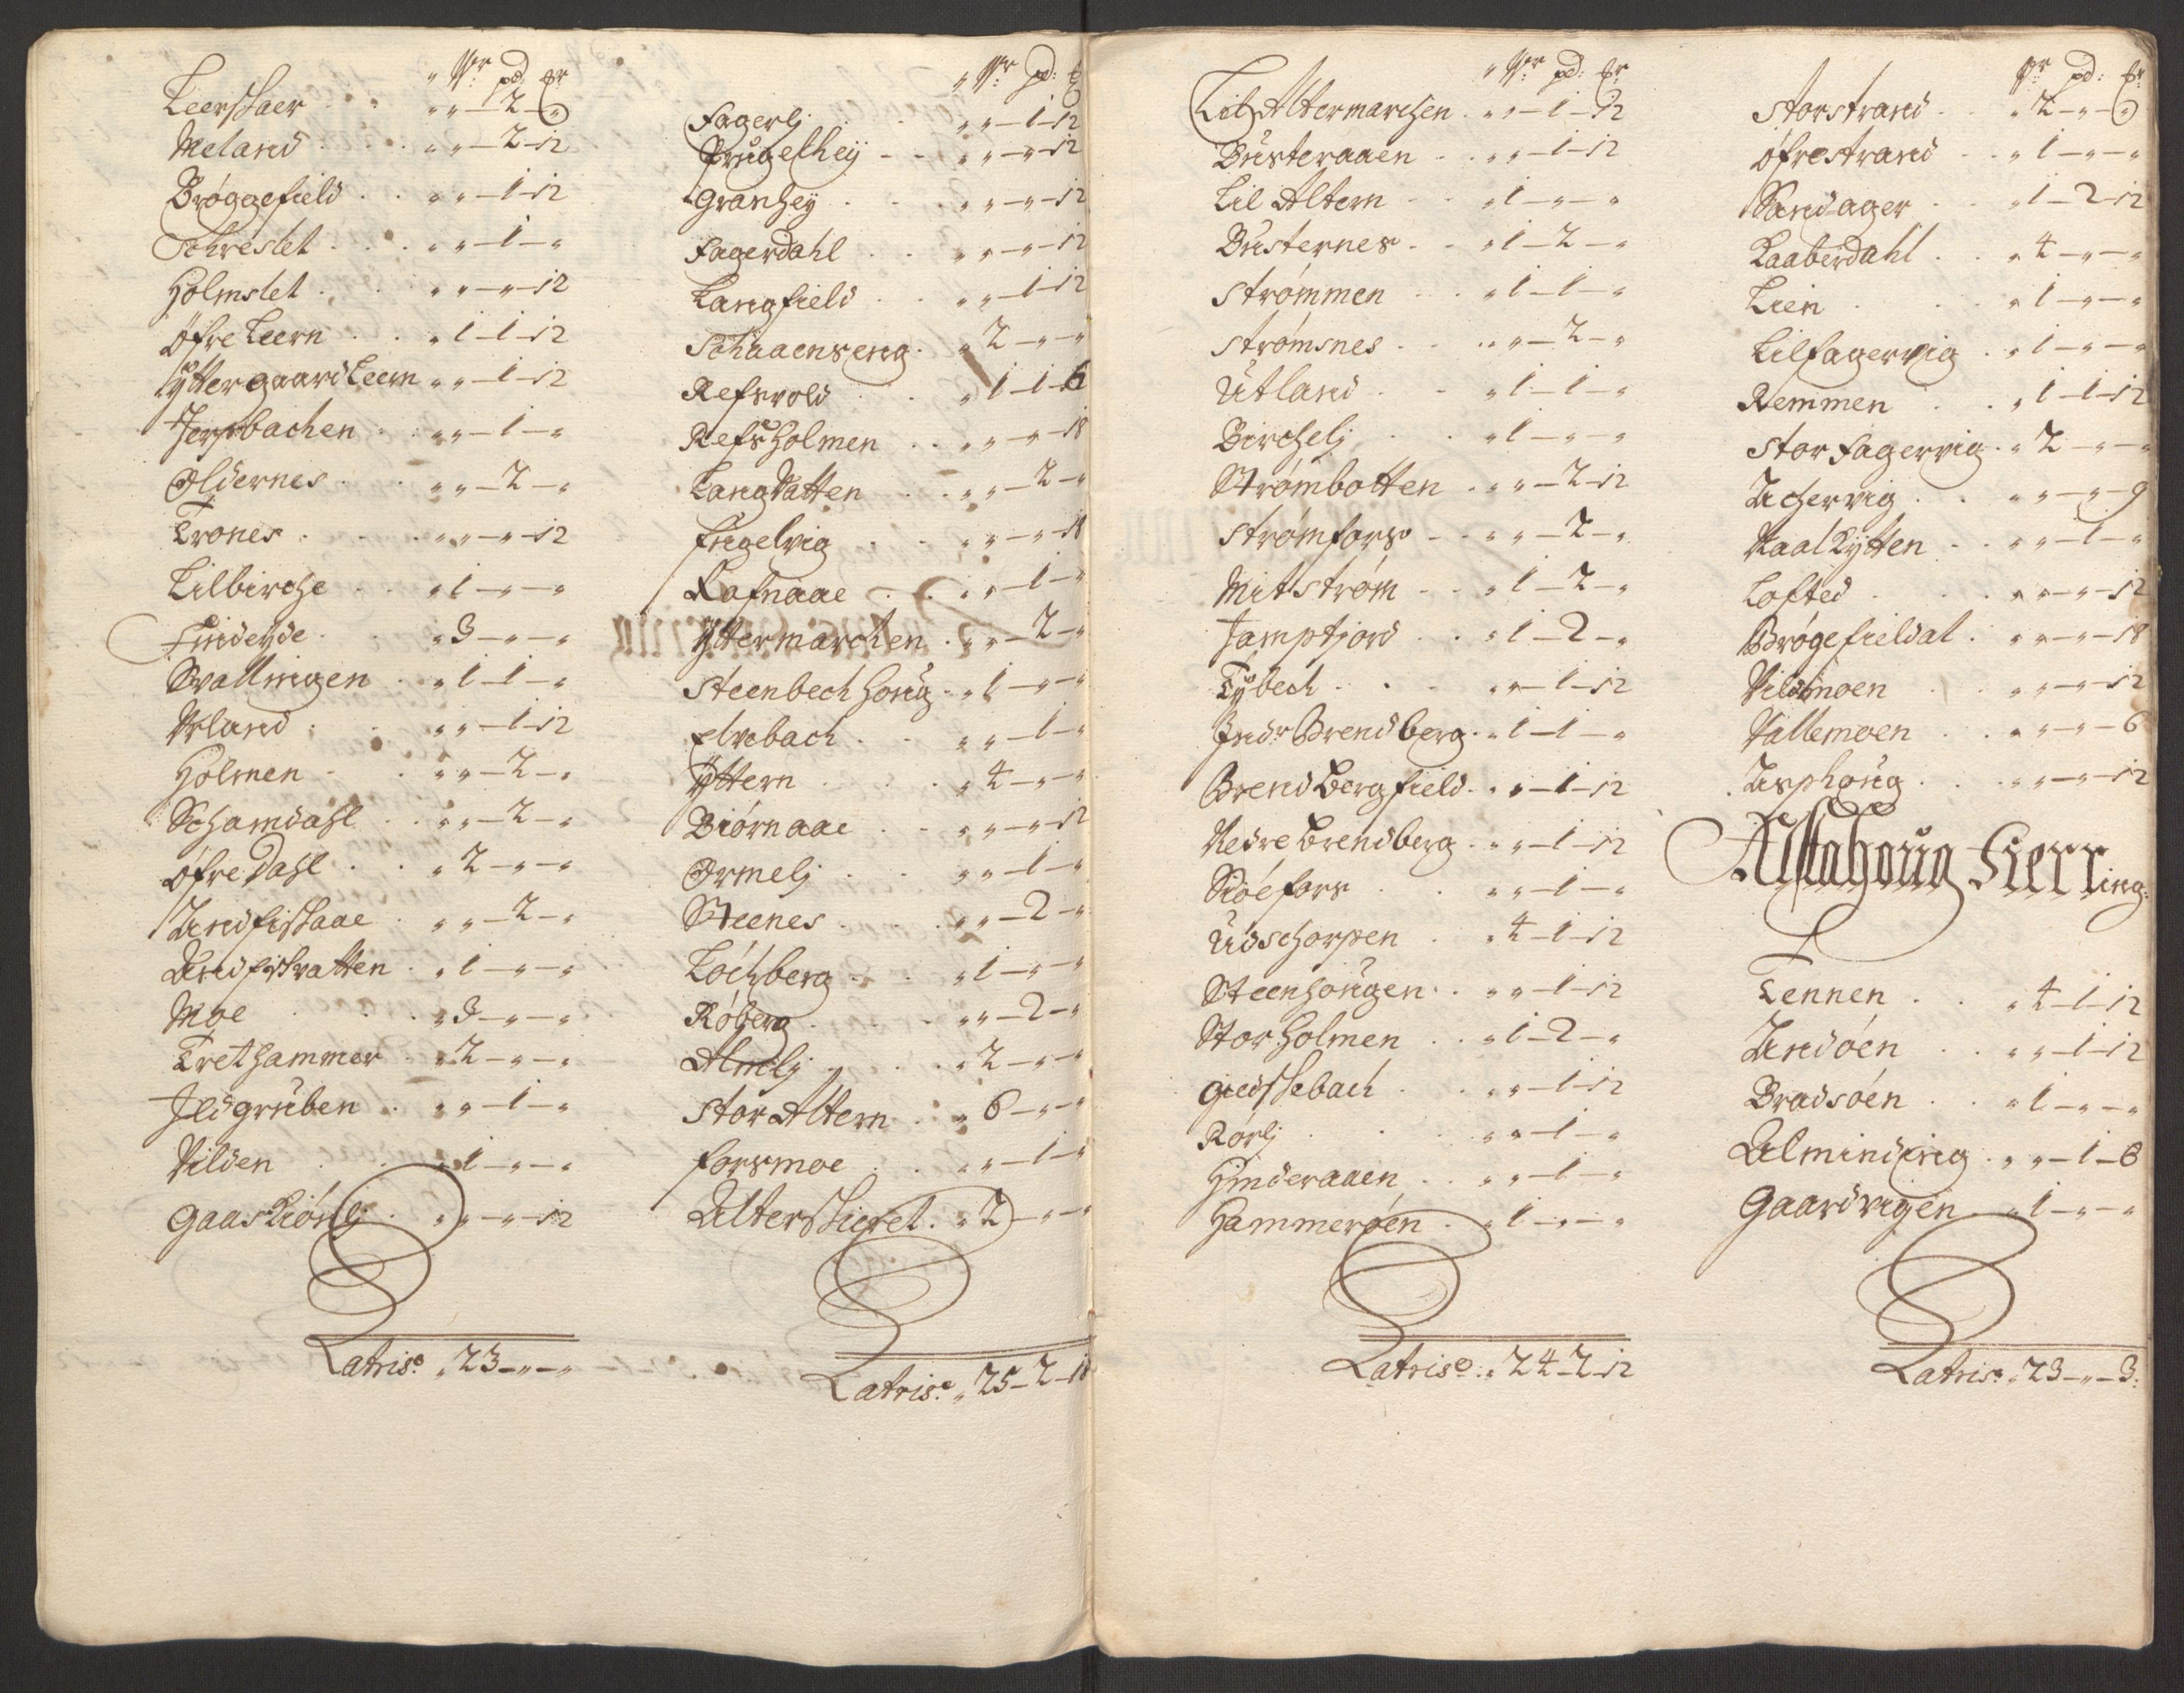 „ Wr pd: Er
Leerskaer . . „ „ — 2 — „
Meland . . . „ „ — 2 - 12
Brøggefield . . „ „ — 1 - 12
Schreslet . . . „ „ — 1 — „
Holmslet . . „ „ — „ - 12
Øfre Leern . . „ 1 - 1 - 12
Yttergaard Leern „ „ — 1 - 12
Jerpbachen . . „ „ — 1 — „
Oldernes . . „ „ — 2 — „
Trones . . . „ „ — „ - 12
Lilbirche . . „ 1 — „ — „
Findeyde . . „ 3 — „ — „
Svallingen . „ 1 - 1 — „
Urland . . „ „ — 1 - 12
Holmen . . „ „ — 2 — „
Schamdahl . . „ „ — 2 — „
Øfre Dahl . . „ 2 — „ — „
Andfiskaae . „ „ — 2 — „
Andfiskvatten . „ 1 — „ — „
Moe . . . „ 3 — „ — „
Trethammer . „ 2 — „ — „
Ildgruben . . „ „ — 1 — „
Vilden . . „ 1 — „ — „
Gaaskiønlj . „ „ — „ - 12
Latris: „ 23 — „ — „
„ Wr pd: E
Fagerlj . . „ „ — 1 - 12
Prugelhey . . „ „ — „ - 12
Granhey . . . „ „ — „ - 12
Fagerdahl . . „ „ — „ - 12
Langfield . . „ „ — 1 - 12
Schaaenseng . „ 2 — „ — „
Refsvold . . „ 1 - 1 - 6
Refsholmen . . „ „ — „ - 18
Langvatten . . „ „ — 2 — „
Engelvig . . „ „ — „ - 18
Rafnaae . . „ „ — 1 — „
Yttermarchen . „ „ — 2 — „
Steenbechhoug . „ 1 — „ — „
Elvebach . . „ „ — 1 — „
Yttern . . . „ 4 — „ — „
Biørnaae . . „ „ — „ - 12
Ormelj . . „ „ — 1 — „
Steenes . . . „ „ — 2 — „
Lochberg . . „ 1 — „ — „
Røberg . . . „ „ — 2 — „
Almlj . . . „ 2 — „ — „
Stor Altern . „ 6 — „ — „
Forsmoe . . „ „ — 1 — „
Alterskieret . „ 2 — „ — „
Latris: „ 25 — 2 - 18
„ Wr pd: Er
Lil Altermarchen . „ „ — 1 - 12
Busteraaen . . „ „ — 1 - 12
Lil Altern . . „ 1 — „ — „
Busternes . . „ 1 — 2 — „
Strømmen . . „ 1 — 1 — „
Strømsnes . . „ „ — 2 — „
Utland . . „ 1 — 1 — „
Birchelj . . „ 1 — „ — „
Strømbotten . „ „ — 2 - 12
Strømfors . „ „ — 2 — „
Mitstrøm . . „ 1 — 2 — „
Jamptjord . . „ 1 — 2 — „
Tybech . . . „ „ — 1 - 12
Indr Brendberg . „ 1 — 1 — „
Brendbergfield . „ „ — 1 - 12
Nedre Brendberg . „ „ — 1 - 12
Sioefors . . „ „ — 1 — „
Udschorpen . „ 4 - 1 - 12
Steenhougen . . „ „ — 1 - 12
Storholmen . . „ 1 — 2 — „
Giedskebach . . „ „ — 1 - 12
Rørlj . . . „ „ — 1 — „
Hinderaaen . . „ „ — 1 — „
Hammerøen . „ 1 — „ — „
Latris: „ 24 — 2 - 12
Wr pd: Er
Storstrand . . „ 2 — „ — „
Øfrestrand . . „ 1 — „ — „
Sandager . . „ 1 — 2 - 12
Kaaberdahl . . „ 4 — „ — „
Lien . . . „ 1 — „ — „
Lilfagervig . „ 1 — „ — „
Remmen . . „ 1 - 1 - 12
Storfagervig . „ 2 — „ — „
Achervig . . „ „ — „ — 9
Kaalrytten . . „ „ — 1 — „
Lofted . . . „ „ — „ - 12
Brøgefieldal . „ „ — „ - 18
Vildmoen . „ „ — „ - 12
Vallemoen . . „ „ — „ — 6
Asphoug . . „ „ — „ - 12
Alstahoug Fierring:
Tennen . . „ 4 - 1 - 12
Andøen . . „ „ — 1 - 12
Bradsøen . . „ 1 — „ — „
Alminding . „ „ — 1 — 6
Gaardvigen . „ 1 — „ — „
Latris: „ 23 — „ — 3: